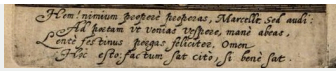 Hem! nimium properè properas, Marcelle. Sed audi:
Ad portam ut venias Vespere, mane abeas,
Lentè festinus pergas feliciter. Omen
Hic esto: factum sat citò, si benè sat.